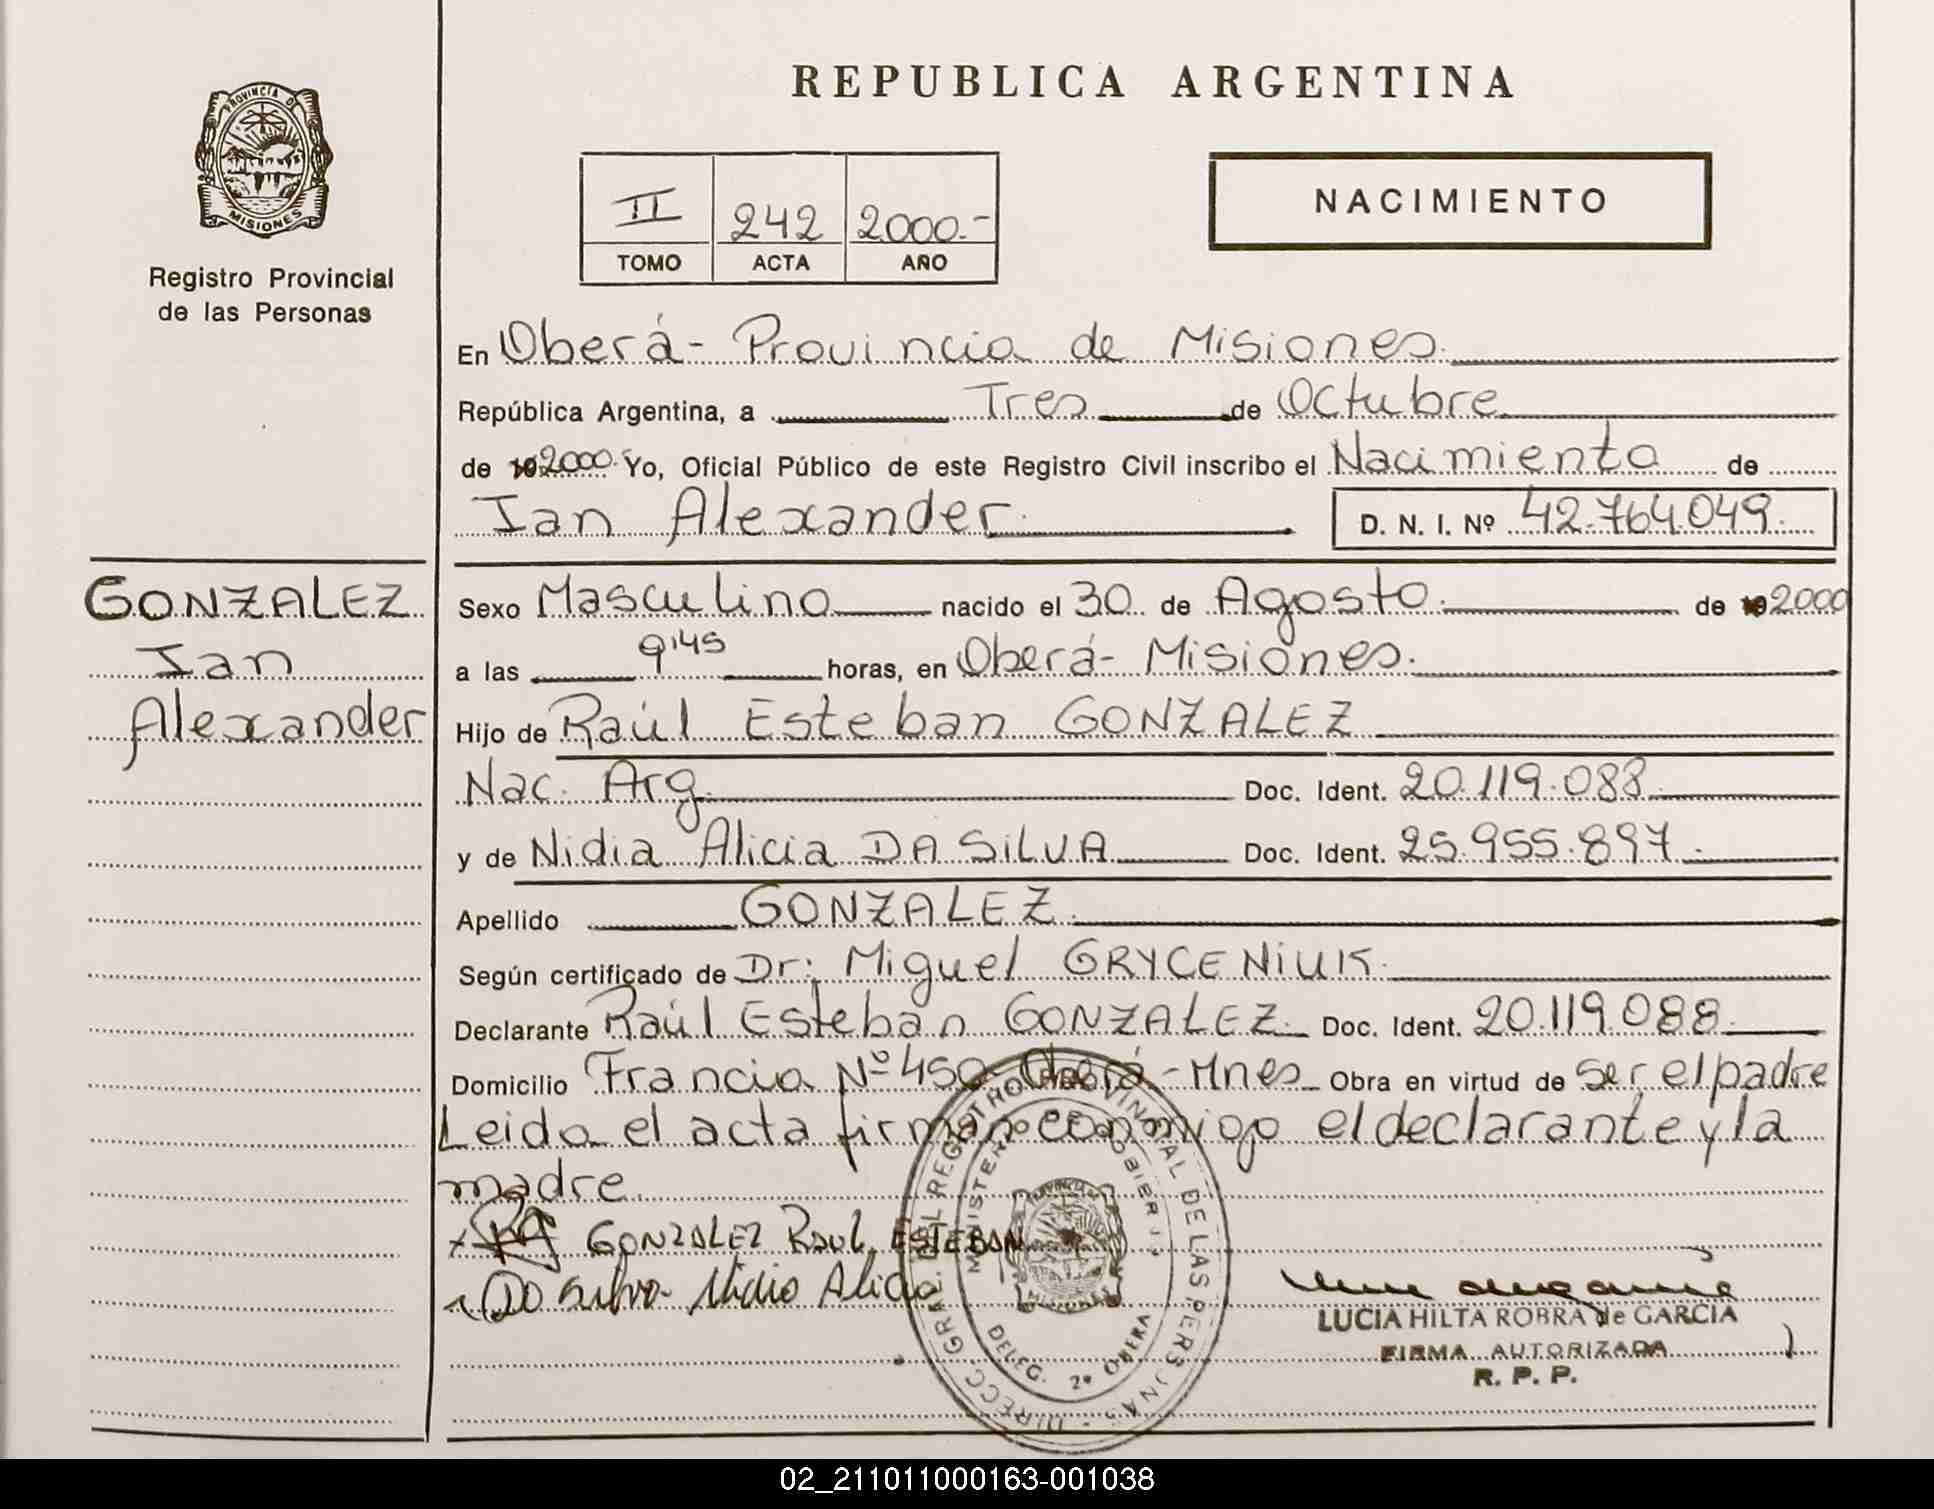 REPUBLICA ARGENTINA
PROVINCIA DE
MISIONES
Registro Provincial
de las Personas
II 242 2000.-
TOMO ACTA AÑO
NACIMIENTO
En Oberá- Provincia de Misiones.
República Argentina, a Tres de Octubre
de 19 2000. Yo, Oficial Público de este Registro Civil inscribo el Nacimiento de
Ian Alexander. D. N. I. Nº 42.764.049.
GONZALEZ
Ian
Alexander
Sexo Masculino nacido el 30 de Agosto. de 19 2000
a las 9'45 horas, en Oberá- Misiones.
Hijo de Raúl Esteban GONZALEZ
Nac. Arg. Doc. Ident. 20.119.088.
y de Nidia Alicia DA SILVA Doc. Ident. 25.955.897.
Apellido GONZALEZ.
Según certificado de Dr: Miguel GRYCENIUK.
Declarante Raúl Esteban GONZALEZ. Doc. Ident. 20.119.088
Domicilio Francia Nº 450- Oberá- Mnes Obra en virtud de ser el padre
Leida el acta firman conmigo el declarante y la
madre.
GONZALEZ RAUL ESTEBAN
Da Silva Nidia Alicia
DIRECC. GRAL. DEL REGISTRO PROVINCIAL DE LAS PERSONAS
MINISTERIO DE GOBIERNO
PROVINCIA DE
MISIONES
DELEG. 2ª OBERA
LUCIA HILTA ROBRA de GARCIA
FIRMA AUTORIZADA
R. P. P.
02_211011000163-001038